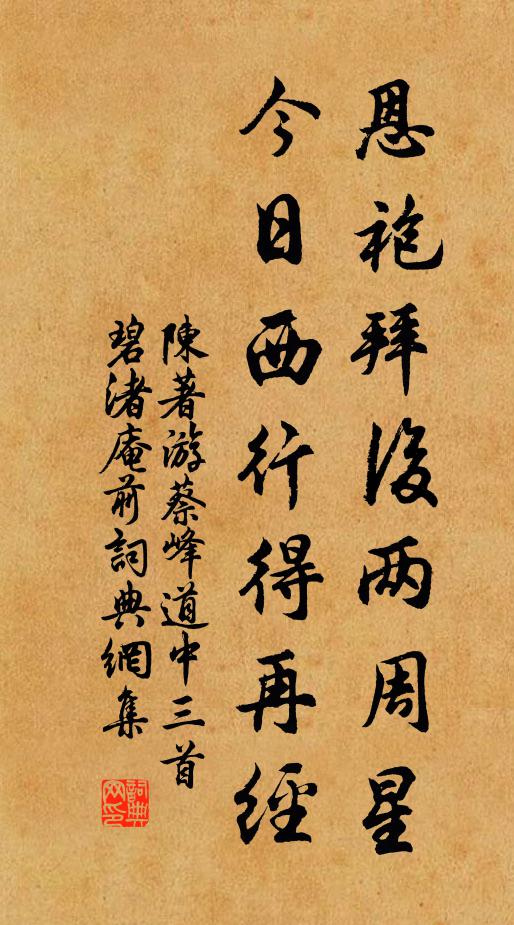 恩袍拜後两周星
今日西行得再經
陳著游蔡峰道中三首
碧渚庵前詞典網集
詞典网印